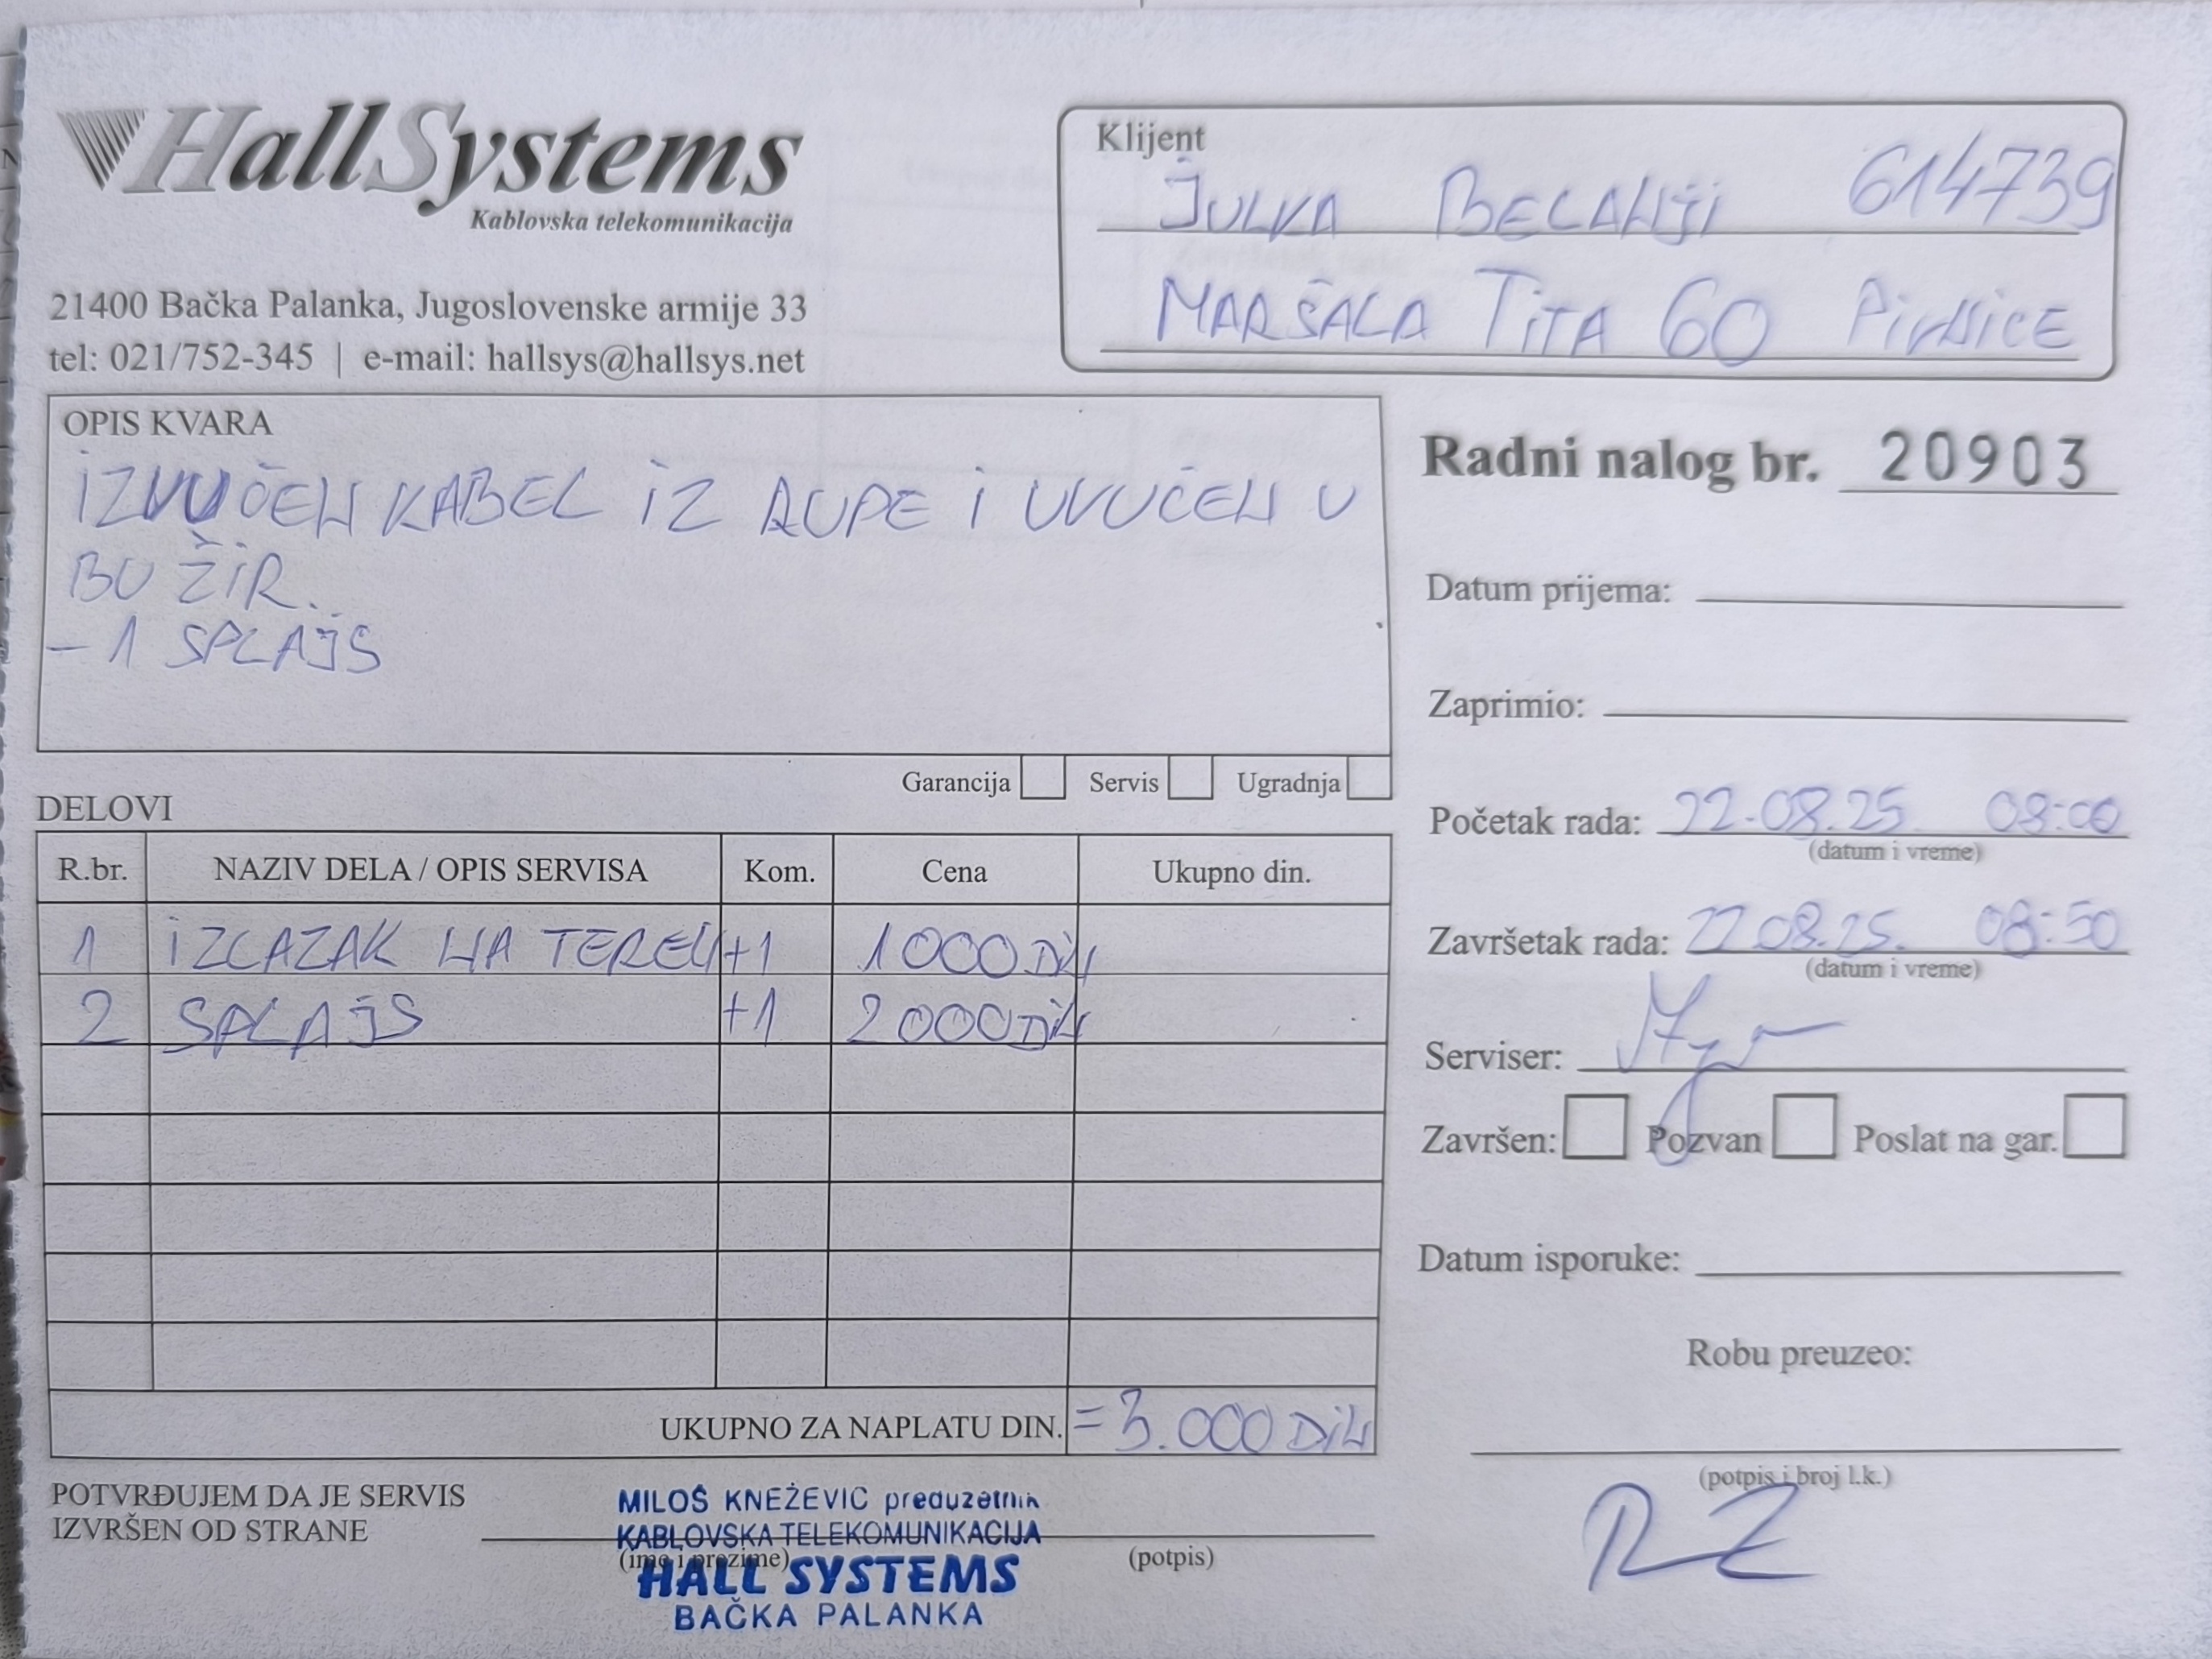 HallSystems
Kablovska telekomunikacija
21400 Bačka Palanka, Jugoslovenske armije 33
tel: 021/752-345 | e-mail: hallsys@hallsys.net
Klijent
JULKA BECANJI 614739
MARŠALA TITA 60 PIVNICE
OPIS KVARA
IZVUČEN KABEL IZ RUPE I UVUČEN U
BUŽIR.
- 1 SPLAJS
Garancija Servis Ugradnja
Radni nalog br. 20903
Datum prijema:
Zaprimio:
Početak rada: 22.08.25. 08:00
(datum i vreme)
Završetak rada: 22.08.25. 08:50
(datum i vreme)
Serviser:
Završen: Pozvan Poslat na gar.
Datum isporuke:
Robu preuzeo:
(potpis i broj l.k.)
DELOVI
R.br. NAZIV DELA / OPIS SERVISA Kom. Cena Ukupno din.
1 IZLAZAK NA TEREN +1 1000 DIN
2 SPLAJS +1 2000 DIN
UKUPNO ZA NAPLATU DIN. = 3.000 DIN
POTVRĐUJEM DA JE SERVIS
IZVRŠEN OD STRANE
(ime i prezime) (potpis)
MILOŠ KNEŽEVIĆ preduzetnik
KABLOVSKA TELEKOMUNIKACIJA
HALL SYSTEMS
BAČKA PALANKA